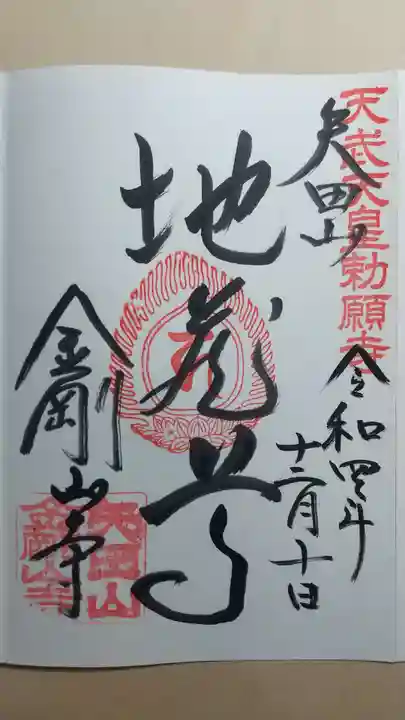 天武天皇勅願寺
矢田山
令和四年
十二月十日
地蔵尊
金剛山寺
矢田山
金剛山寺